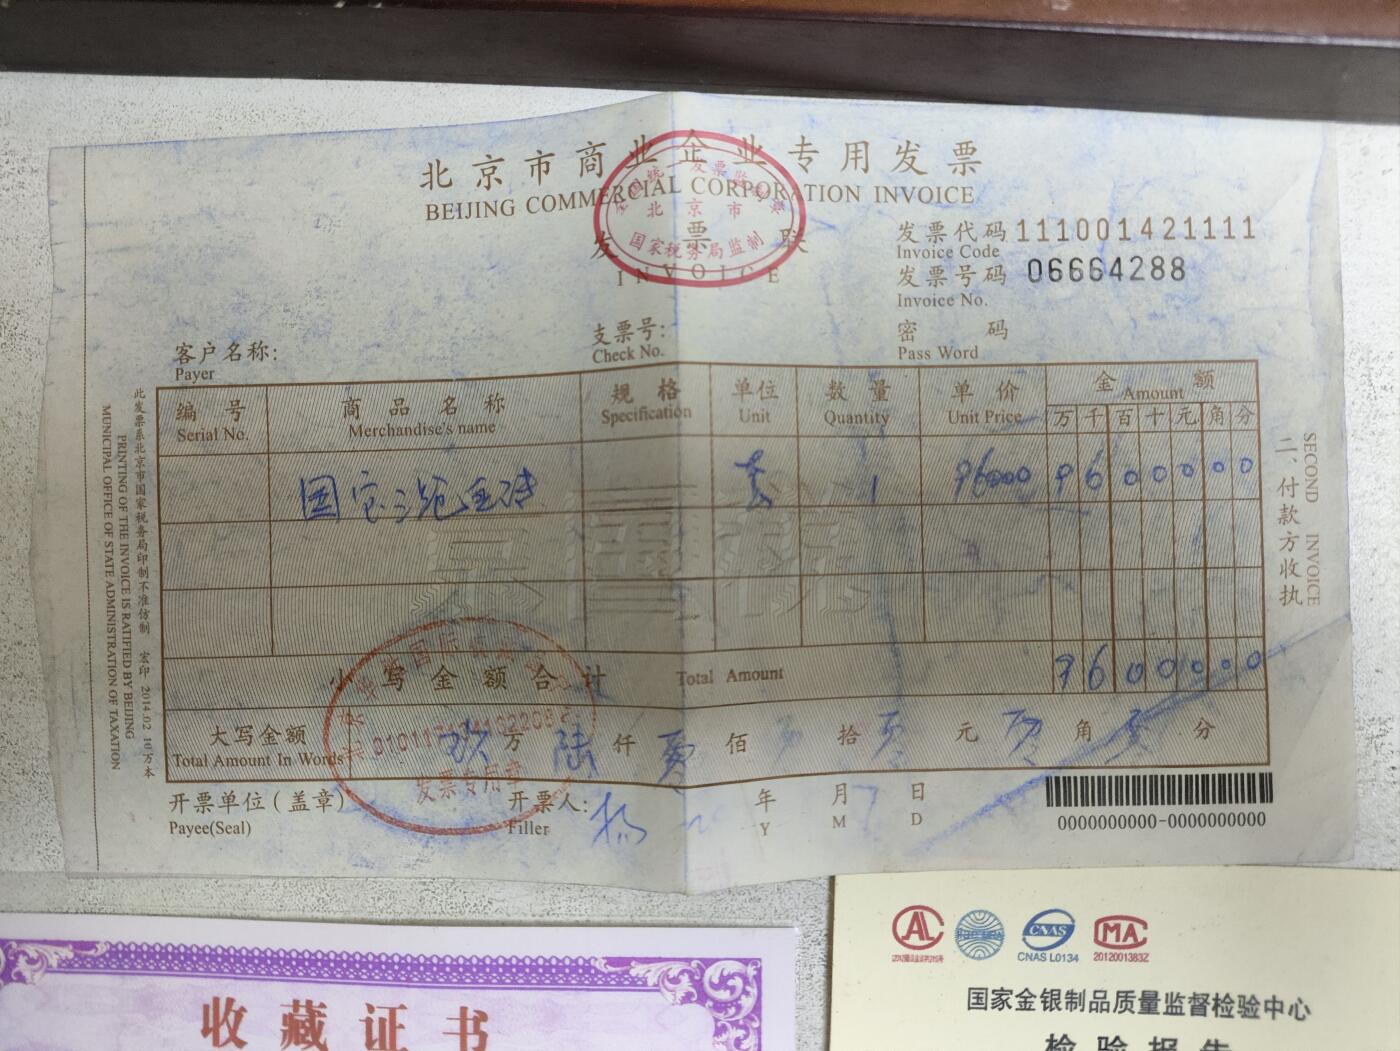 北京市商业企业专用发票
BEIJING COMMERCIAL CORPORATION INVOICE
发票联
INVOICE
全国统一发票监制章
北京市
国家税务局监制
发票代码 111001421111
Invoice Code
发票号码 06664288
Invoice No.
密 码
Pass Word
支票号:
Check No.
客户名称:
Payer
编 号 商品名称 规 格 单位 数 量 单 价 金 额
Serial No. Merchandise's name Specification Unit Quantity Unit Price Amount
万 千 百 十 元 角 分
国宝 金砖 套 1 96000 9 6 0 0 0 0 0
小写金额合计 Total Amount 9 6 0 0 0 0 0
大写金额 玖 万 陆 仟 零 佰 零 拾 零 元 零 角 零 分
Total Amount In Words
开票单位(盖章) 开票人: 杨 年 月 日
Payee(Seal) Filler Y M D
发票专用章
0000000000-0000000000
二、付款方收执
SECOND INVOICE
此发票系北京市国家税务局印制不准仿制 宏印 2014.02 10万本
PRINTING OF THE INVOICE IS RATIFIED BY BEIJING
MUNICIPAL OFFICE OF STATE ADMINISTRATION OF TAXATION
收藏证书
CNAS
CNAS L0134
MA
2012001383Z
国家金银制品质量监督检验中心
检验报告